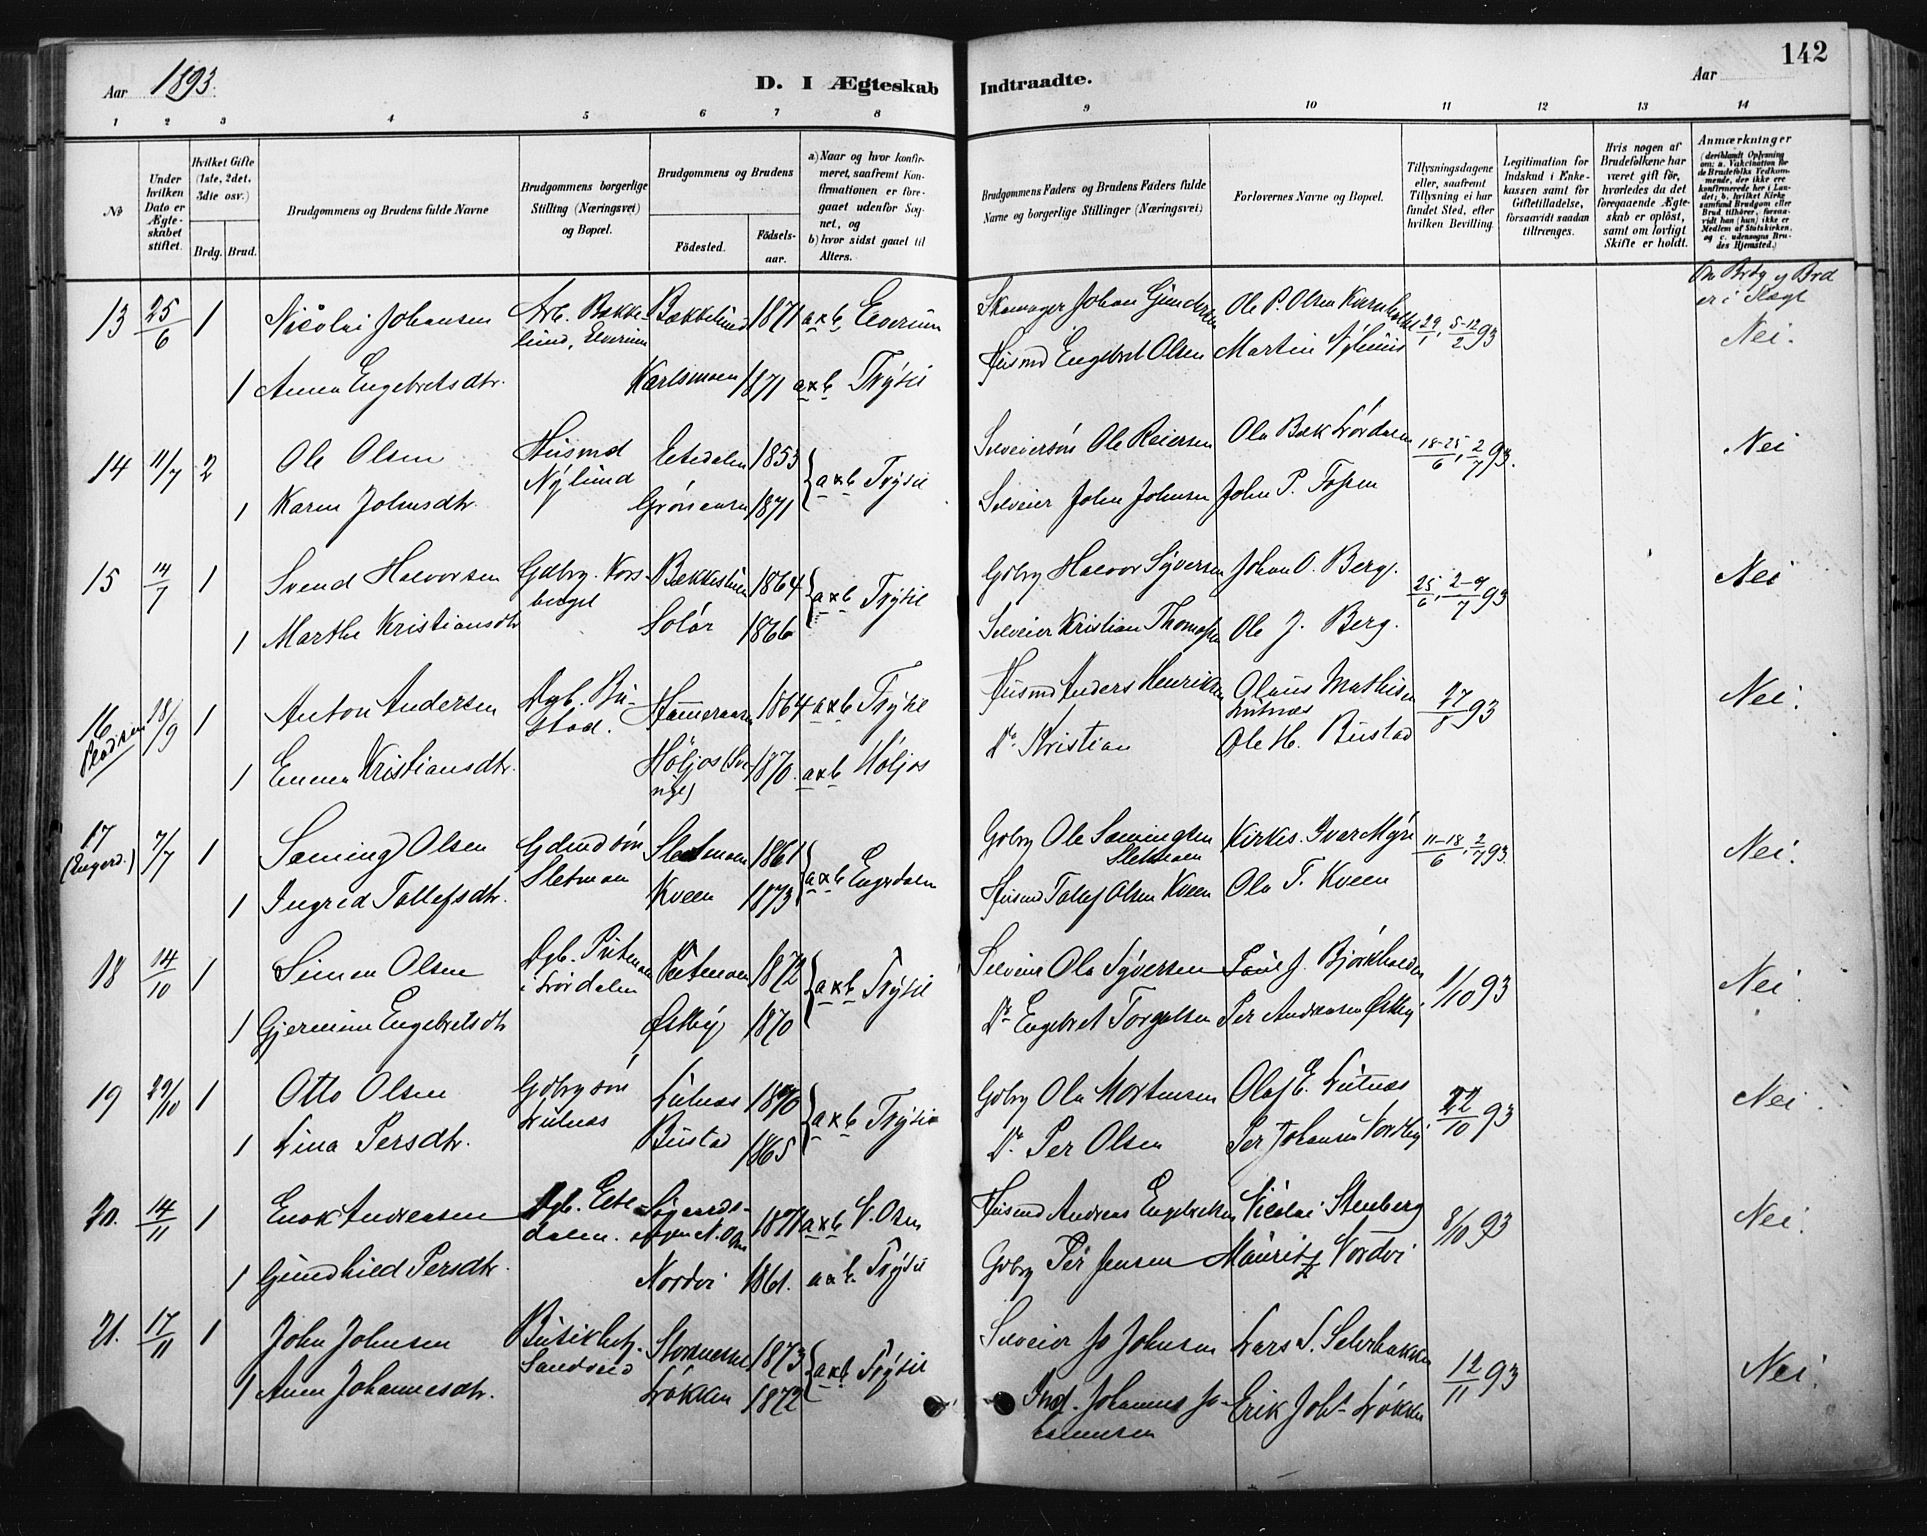 142
Aar 1893. D. I Ægteskab Indtraadte. Aar
1 2 3 4 5 6 7 8 9 10 11 12 13 14
No
Under hvilken Dato er Ægteskabet stiftet.
Hvilket Gifte (1ste, 2det, 3die osv.)
Brdg. Brud.
Brudgommens og Brudens fulde Navne
Brudgommens borgerlige Stilling (Næringsvei) og Bopæl.
Brudgommens og Brudens
Födested. Födselsaar.
a) Naar og hvor konfirmeret, saafremt Konfirmationen er foregaaet udenfor Sognet, og
b) hvor sidst gaaet til Alters.
Brudgommens Faders og Brudens Faders fulde Navne og borgerlige Stillinger (Næringsvei)
Forlovernes Navne og Bopæl.
Tillysningsdagene eller, saafremt Tillysning ei har fundet Sted, efter hvilken Bevilling.
Legitimation for Indskud i Enkekassen samt for Giftetilladelse, forsaavidt saadan tiltrænges.
Hvis nogen af Brudefolkene har været gift før, hvorledes da det foregaaende Ægteskab er oplöst, samt om lovligt Skifte er holdt.
Anmærkninger (deriblandt Oplysning om: a. Vakcination for de Brudefolks Vedkommende, der ikke ere konfirmerede her i Landet; b. hvilket Kirkesamfund Brudgom eller Brud tilhører, forsaavidt han (hun) ikke er Medlem af Statskirken, og c. udensogns Brudes Hjemsted.)
Om Brdg og Brd er i Slægt
13 25/6 1 Nicolai Johansen Arb. Bækkelund, Elverum Bækkelund 1871 a & b Elverum Skomager Johan Gundersen Ole P. Olsen 29/1, 5-12/2 93 Nei.
1 Anna Engebretsdtr. Karlsmoen 1871 a & b Trysil Husmd Engebret Olsen Martin Nylund
14 11/7 2 Ole Olsen Husmd Nylund Eltdalen 1853 a & b Trysil Selveiersøn Ole Reiersen Ole Bæk Lørdalen 18-25/6, 2/7 93. Nei
1 Karen Johnsdtr. Grønoren 1871 Selveier John Johnsen John P. Fossen
15 14/7 1 Svend Halvorsen Gdbrg. Korsberget 1864 a & b Trysil Gdbrg Halvor Syversen Johan O. Berg. 25/6, 2-9/7 93 Nei
1 Marthe Kristiansdtr Solør 1866 Selveier Kristian Thomassen Ole J. Berg.
16 28/9 1 Anton Andersen Dgb. Bustad. 1864 a & b Trysil Husmd Anders Henriksen Olaus Mathisen Lutnæs 27/8 93 Nei.
1 Emma Kristiansdtr. Höljos (Sverige) 1870. a & b Höljos Do Kristian Ole H. Bustad
17 (Engerd.) 7/7 1 Sæming Olsen Gdmdsøn Sletmoen Sletmoen 1861 a & b Engerdalen Gdbrg Ole Sæmingsen Sletmoen Kirkes. Ivar Myre 11-18/6, 2/7 93. Nei.
1 Ingrid Tollefsdtr. Kveen 1873 Husmd Tollef Olsen Kveen Ola T. Kveen
18 14/10 1 Simen Olsen Dgb. Putmoen i Lørdalen Putmoen 1872 a & b Trysil Selveier Ola Syversen Paul J. Bjørkholden 1/10 93 Nei
1 Gjermine Engebretsdtr Østby 1870 Do Engebret Torgalsen Per Andreasen Østby.
19 29/10 1 Otto Olsen Gdbrgsøn Lutnæs Lutnæs 1870 a & b Trysil Gdbrg Ola Mortensen Olaf E. Lutnæs 22/10 93 Nei.
1 Lina Persdtr. Bustad 1865 Do Per Olsen Per Johansen Nordby
20. 14/11 1 Enok Andreasen Dgb. Eltdalen. 1871 a & b N. Osen Husmd Andreas Engebretsen Nicolai Stenberg 8/10 93 Nei.
1 Gundhild Persdtr. Nordvi 1861. a & b. Trysil Gdbrg Per Jensen Mauritz Nordvi
21. 17/11 1 John Johnsen Sandvied 1873 a & b Trysil Selveier Jo Johnsen Lars S. Selerbakken 12/11 93 Nei.
1 Anne Johannesdtr. Løkken 1872 Ind. Johannes Johannesen Erik Johs Løkken